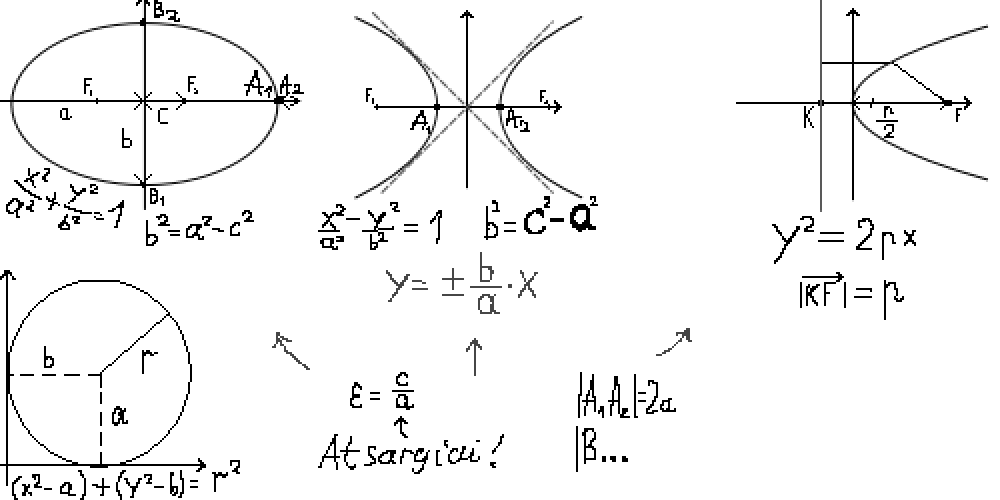 B₂
F₁ F₂ A₁ A₂
a C
b
B₁
x²/a² + y²/b² = 1
b² = a² - c²
F₁ F₂
A₁ A₂
x²/a² - y²/b² = 1 b² = c² - a²
y = ± b/a · x
K p/2 F
y² = 2px
|KF| = p
b r
a
(x² - a) + (y² - b) = r²
ε = c/a
Atsargiai!
|A₁A₂| = 2a
|B...